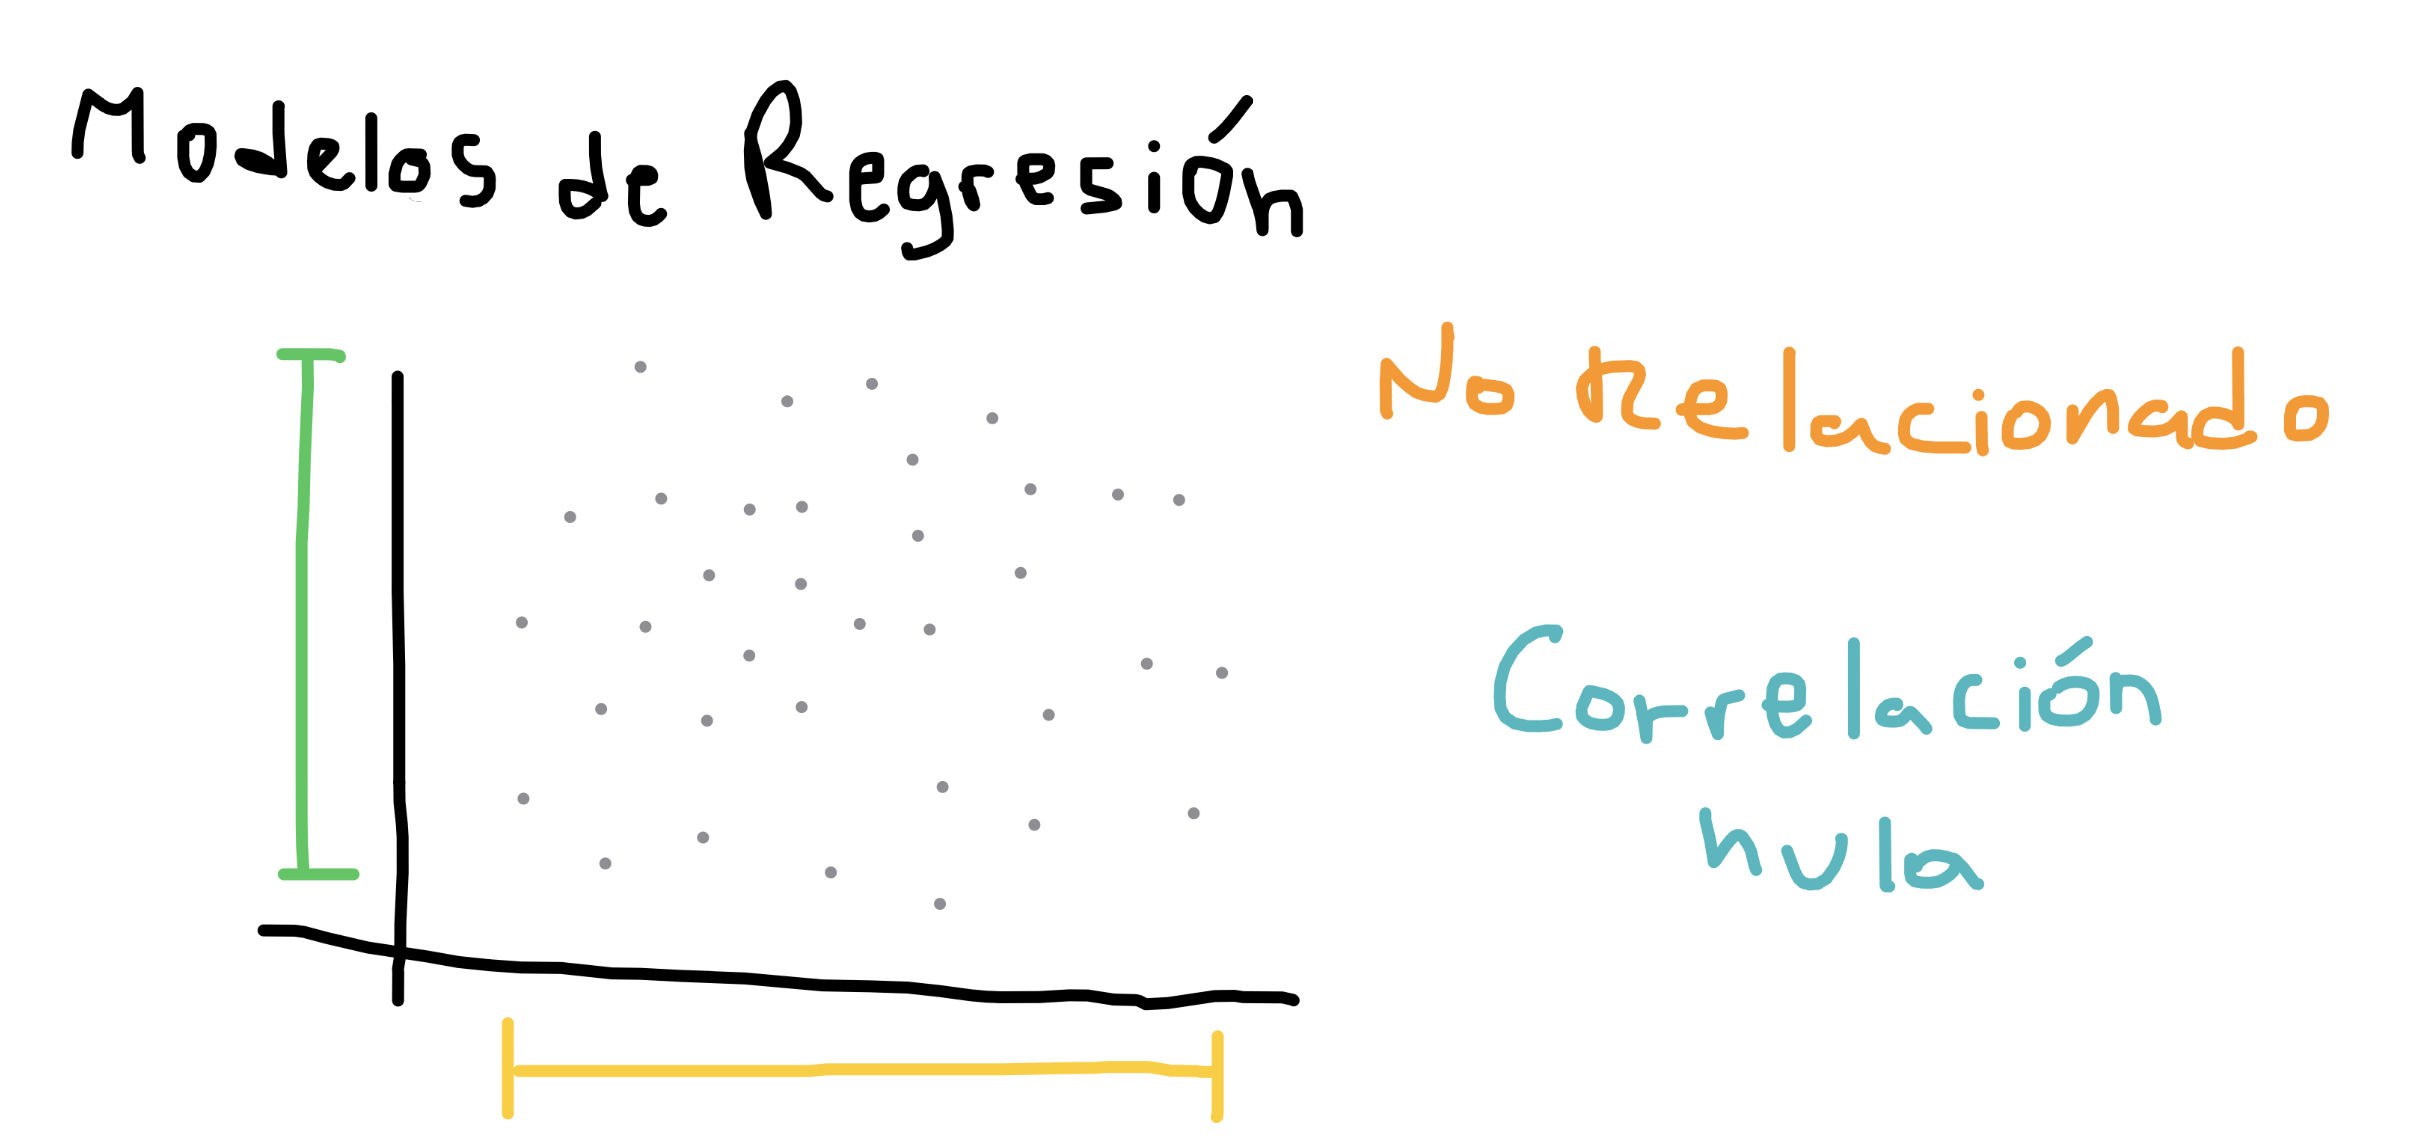 Modelos de Regresión
No Relacionado
Correlación
nula